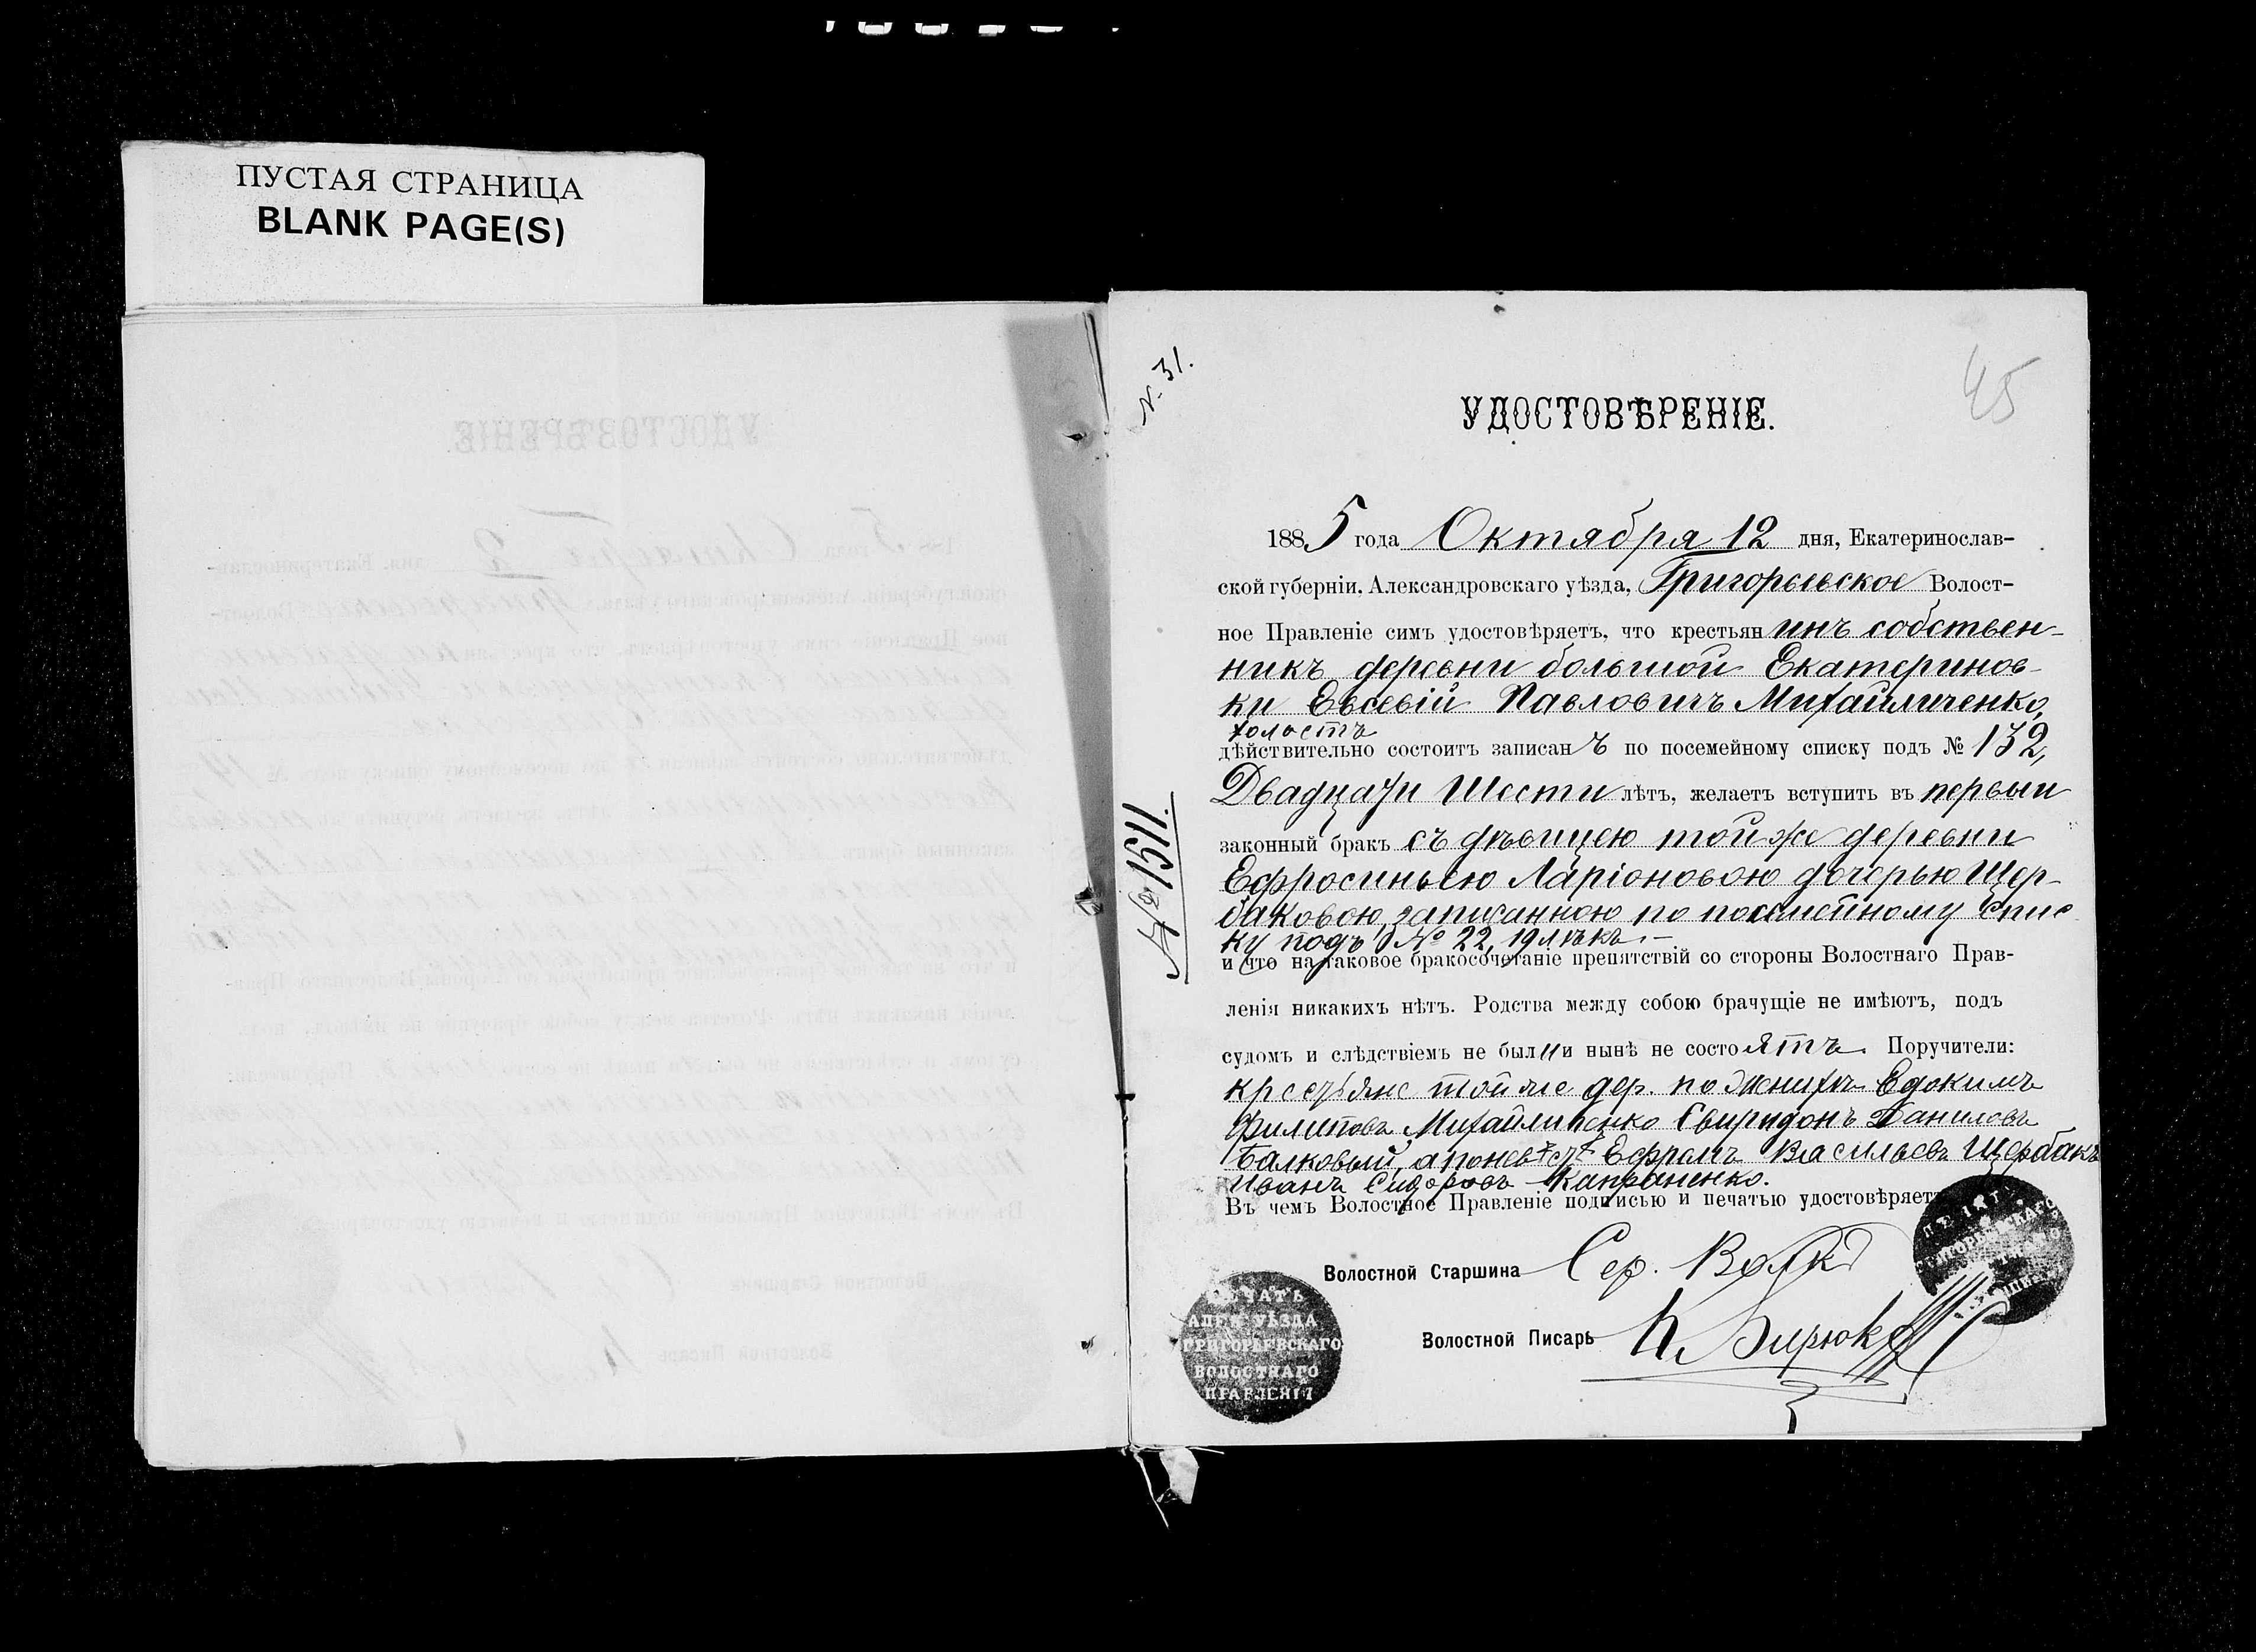 ПУСТАЯ СТРАНИЦА
BLANK PAGE(S)
№ 31.
45
УДОСТОВѢРЕНІЕ.
1885 года Октября 12 дня, Екатеринослав-
ской губерніи, Александровскаго уѣзда, Григорьевское Волост-
ное Правленіе симъ удостовѣряетъ, что крестьянинъ собствен-
никъ деревни большой Екатеринов-
ки Евсевій Павловичъ Михайличенко,
холостъ
дѣйствительно состоитъ записанъ по посемейному списку подъ № 132,
Двадцати Шести лѣтъ, желаетъ вступить въ первый
законный бракъ съ дѣвицею той же деревни
Ефросиньею Ларіоновою дочерью Щер-
баковою, записанною по посемейному спис
ку подъ № 22, 19 лѣтъ.
и что на таковое бракосочетаніе препятствій со стороны Волостнаго Прав-
ленія никакихъ нѣтъ. Родства между собою брачущіе не имѣютъ, подъ
судомъ и слѣдствіемъ не были и нынѣ не состоятъ. Поручители:
крестьяне той же дер. по женихѣ Едокимъ
Филиповъ Михайличенко Свиридонъ Даниловъ
Балковый, а по невѣстѣ Ефремъ Васильевъ Щербакъ
Иванъ Сидоровъ
Въ чемъ Волостное Правленіе подписью и печатью удостовѣряетъ
Волостной Старшина Сер. Волкъ
Волостной Писарь Бирюковъ
№ 1511.
ПЕЧАТЬ
АЛЕК. УѢЗДА
ГРИГОРЬЕВСКАГО
ВОЛОСТНАГО
ПРАВЛЕНІЯ